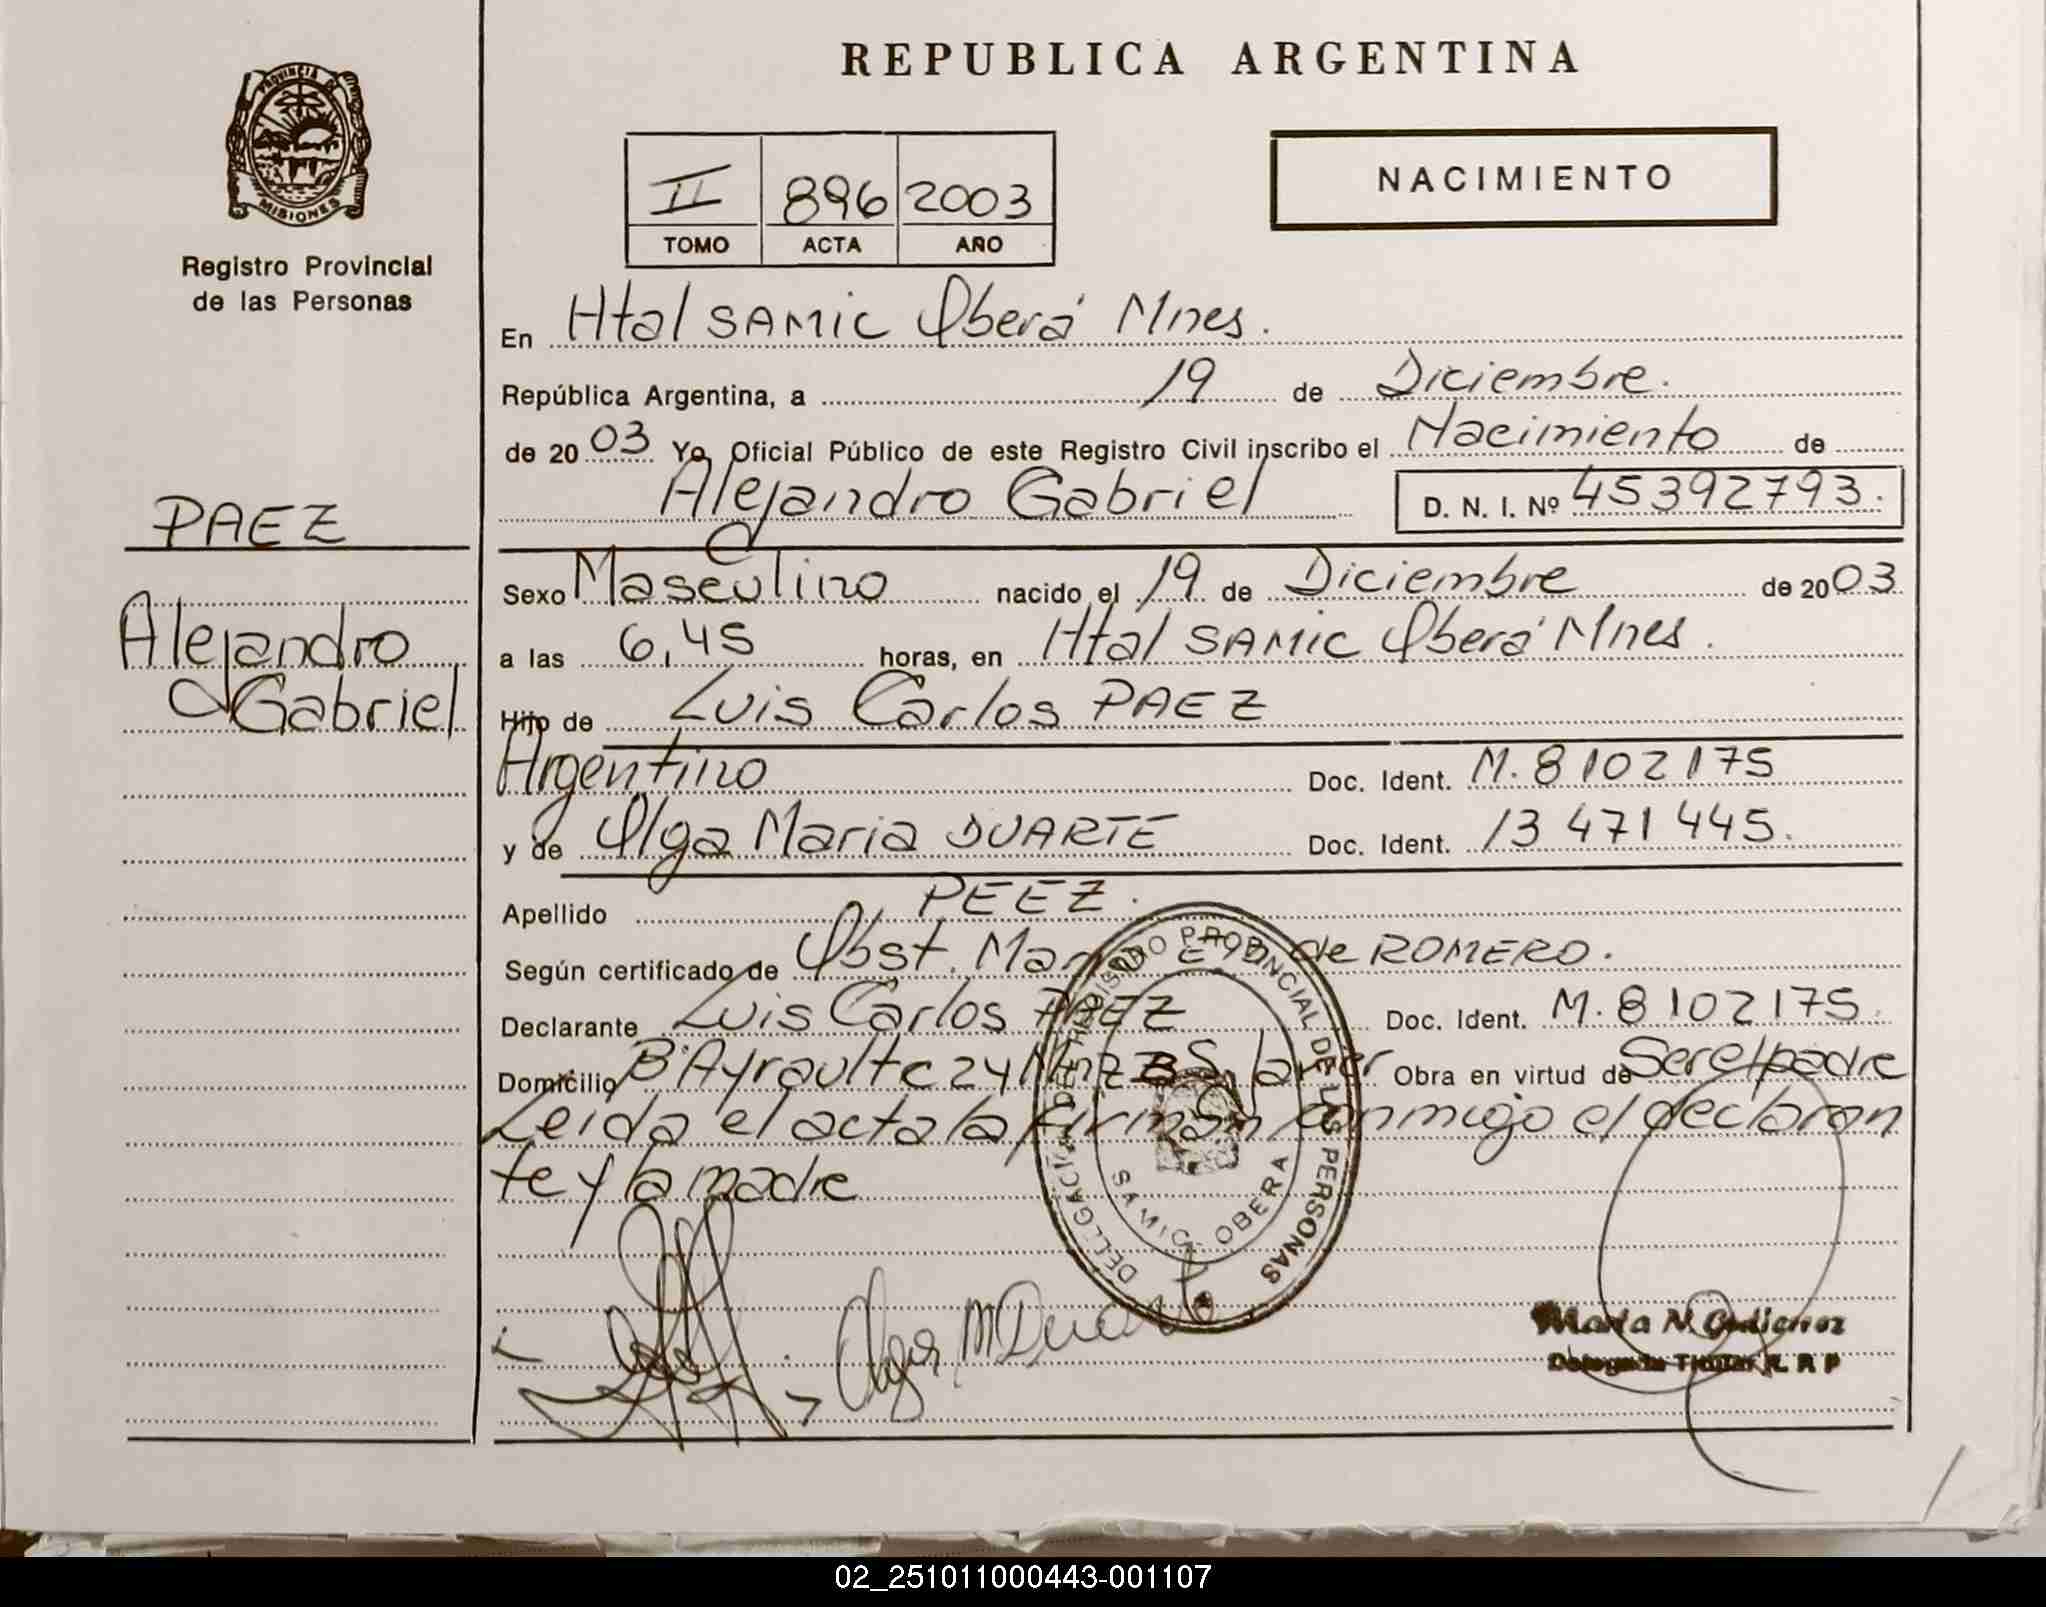 REPUBLICA ARGENTINA
PROVINCIA DE
MISIONES
Registro Provincial
de las Personas
II 896 2003
TOMO ACTA AÑO
NACIMIENTO
En Htal SAMIC Oberá Mnes.
República Argentina, a 19 de Diciembre.
de 2003 Yo, Oficial Público de este Registro Civil inscribo el Nacimiento de
Alejandro Gabriel D. N. I. Nº 45392793.
PAEZ
Alejandro
Gabriel
Sexo Masculino nacido el 19 de Diciembre de 2003
a las 6,45 horas, en Htal SAMIC Oberá Mnes.
Hijo de Luis Carlos PAEZ
Argentino Doc. Ident. M. 8102175
y de Olga Maria DUARTE Doc. Ident. 13 471 445.
Apellido PEEZ.
Según certificado de Obst. de ROMERO.
Declarante Luis Carlos PAEZ Doc. Ident. M. 8102175.
Domicilio Obra en virtud de Ser el padre
Leida el acta la firman conmigo el declaran
te y la madre
DELEGACION REGISTRO PROVINCIAL DE LAS PERSONAS
SAMIC OBERA
Olga M Duarte
Maria N. Gutierrez
02_251011000443-001107